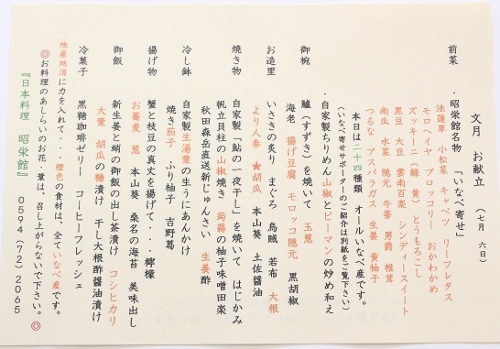 文月　お献立　（七月　六日）
前菜　・昭栄館名物　「いなべ寄せ」
法蓮草　小松菜　キャベツ　リーフレタス
モロヘイヤ　ブロッコリー　おかわかめ
ズッキーニ（緑　黄）　とうもろこし
黒豆　大豆　雲南百薬　シンディースイート
南瓜　水菜　隠元　牛蒡　男爵　椎茸
つるな　アスパラガス　生姜　黄柚子
本日は二十四種類　オールいなべ産です。
（いなべ寄せサポーターのご紹介は別紙をご覧下さい）
・自家製ちりめん山椒とピーマンの炒め和え
御椀　鱸（すずき）を焼いて　玉葱
海老　揚げ豆腐　モロッコ隠元　黒胡椒
お造里　いさきの炙り　まぐろ　烏賊　若布　大根
より人参　★胡瓜　本山葵　土佐醤油
焼き物　自家製「鮎の一夜干し」を焼いて　はじかみ
帆立貝柱の山椒焼き　蒟蒻の柚子味噌田楽
秋田森岳直送新じゅんさい　生姜酢
冷し鉢　自家製生湯葉の生うにあんかけ
焼き茄子　ふり柚子　吉野葛
揚げ物　蟹と枝豆の真丈を揚げて・・・檸檬
お蕎麦　葱　本山葵　桑名の海苔　美味出し
御飯　新生姜と蛸の御飯の出し茶漬け　コシヒカリ
大葉　胡瓜の糠漬け　干し大根酢醤油漬け
冷菓子　黒糖珈琲ゼリー　コーヒーフレッシュ
地産地消に力を入れて・・・橙色の食材は、全ていなべ産です。
◎お料理のあしらいのお花、葉は、召し上がらないで下さい。◎
『日本料理　昭栄館』　０５９４（７２）２０６５